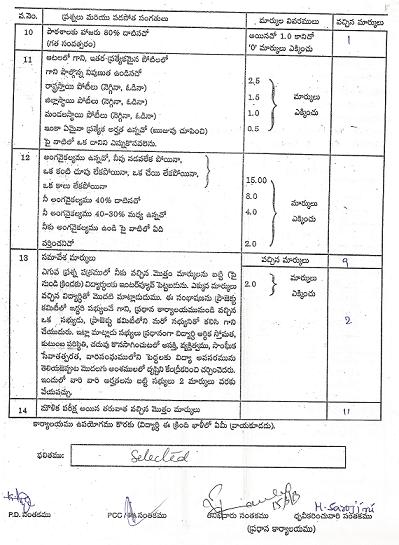 వ.నెం. ప్రశ్నలు మరియు వడపోత సంగతులు మార్కుల వివరములు వచ్చిన మార్కులు
10 పాఠశాలకు హాజరు 80% దాటినచో అయినచో 1.0 కానిచో 1
(గత సంవత్సరం) '0' మార్కులు ఎక్కించు
11 ఆటలలో గాని, ఇతర ప్రత్యేకమైన పోటీలలో
గాని పాల్గొన్న నిపుణుత ఉండినచో
రాష్ట్రస్థాయి పోటీలు (నెగ్గినా, ఓడినా) 2.5
జిల్లాస్థాయి పోటీలు (నెగ్గినా, ఓడినా) 1.5 మార్కులు
మండలస్థాయి పోటీలు (నెగ్గినా, ఓడినా) 1.0 ఎక్కించు
ఇంకా ఏమైనా ప్రత్యేక అర్హత ఉన్నచో (ఋజువు చూపించి) 0.5
పై వాటిలో ఒక దానిని ఎన్నుకొనవలెను.
12 అంగవైకల్యము ఉన్నచో, నీవు నడవలేక పోయినా,
ఒక కంటి చూపు లేకపోయినా, ఒక చేయి లేకపోయినా, 15.00
ఒక కాలు లేకపోయినా
నీ అంగవైకల్యము 40% దాటినచో 8.0 మార్కులు
నీ అంగవైకల్యము 40-30% మధ్య ఉన్నచో 4.0 ఎక్కించు
నీకు అంగవైకల్యము ఉండి పై వాటిలో ఏది
వర్తించనిచో 2.0
13 సమావేశ మార్కులు వచ్చిన మార్కులు 9
ఎగువ ప్రశ్న పత్రములో నీకు వచ్చిన మొత్తం మార్కులను బట్టి (పై
నుండి క్రిందకు) విద్యార్థులను ఇంటర్వ్యూకి పెట్టబడును. ఎక్కువ మార్కులు 2.0 మార్కులు
వచ్చిన విద్యార్థితో మొదటి మాట్లాడుదుము. ఈ సంభాషణను ప్రాజెక్టు ఎక్కించు
కమిటీలో ఇద్దరి సభ్యుంచే గాని, ప్రధాన కార్యాలయమునుండి వచ్చిన
ఒక సభ్యుడు, ప్రాజెక్టు కమిటీలోని మరో సభ్యునితో కలిసి గాని 2
చేయుదురు. ఇట్లా మాట్లాడు సభ్యులు ప్రధానంగా విద్యార్థి ఆర్థిక స్తోమత,
కుటుంబ పరిస్థితి, చదువు కొనసాగించుటలో ఆసక్తి, వ్యక్తిత్వము, సాంఘిక
సేవాతత్పరత, వారిసంఘములోని పెద్దలకు విద్యా అవసరమును
తెలియజెప్పుట మొదలగు అంశములలో దృష్టిని కేంద్రీకరించి చర్చించెదరు.
ఇందులో వారి వారి అర్హతలను బట్టి సభ్యులు 2 మార్కులు వరకు
వేయవచ్చు.
14 మౌఖిక పరీక్ష అయిన తరువాత వచ్చిన మొత్తం మార్కులు 11
కార్యాలయము ఉపయోగము కొరకు (విద్యార్థి ఈ క్రింది ఖాళీలో ఏమీ వ్రాయకూడదు).
ఫలితము: Selected
M. Sarojini
P.D. సంతకము PCC / సంతకము సంతకము ధృవీకరించువారి సంతకము
(ప్రధాన కార్యాలయము)